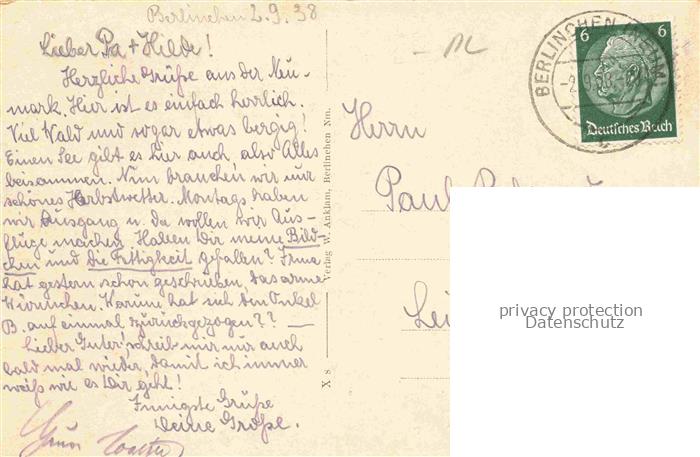 Berlinchen 2.9.38
Lieber Pa + Hilde!
Herzliche Grüße aus der Neu-
mark. Hier ist es einfach herrlich.
Viel Wald und sogar etwas bergig!
Einen See gibt es hier auch, also Alles
beisammen. Nun brauchen wir nur
schönes Herbstwetter. Montags haben
wir Ausgang u. da wollen wir Aus-
flüge machen. Haben Dir meine Bild-
chen und die Fertigkeit gefallen? Irma
hat gestern schon geschrieben, das arme
Würmchen. Warum hat sich der Onkel
B. auf einmal zurückgezogen??
Lieber Guter, schreib mir nur auch
bald mal wieder, damit ich immer
weiß wie es Dir geht!
Innigste Grüße
Deine Große.
Verlag W. Anklam, Berlinchen Nm.
X s
BERLINCHEN
6 6
Deutsches Reich
Herrn
Paul
privacy protection
Datenschutz